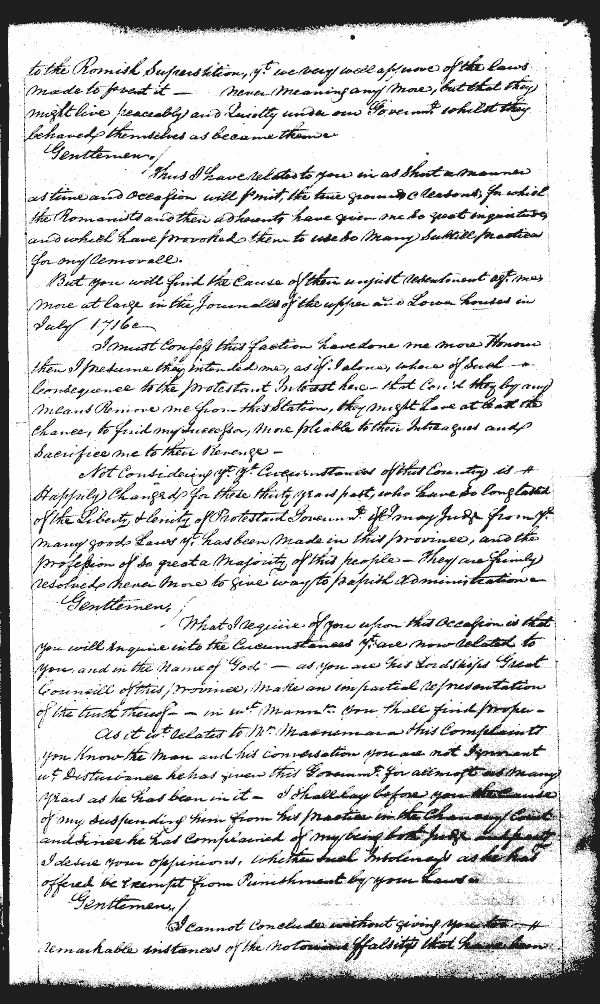 to the Romish Superstition, yt we very well approve of the laws
made to prvent it — never meaning any more, but that they
might live peaceably and Quietly under our Governmt. whilst they
behaved themselves as became them
Gentlemen /
Thus I have related to you in as Short a manner
as time and occasion will prmit, the true grounds & reasons, for which
the Romanists and their adherents have given me so great inquietude
and which have provoked them to use so many Subtill practices
for my removall.
But you will find the Cause of their unjust resentment agt. me
more at large in the Journalls of the upper and Lower houses in
July 1716
I must Confess this faction have done me more Honour
then I presume they intended me, as if I alone, where of Such a
Consequence to the protestant Interest here — that Cou'd they by any
means Remove me from this Station, they might have at least the
Chance, to find my Successor, more pliable to their Intreagues and
Sacrifice me to their Revenge —
Not Considering yt. ye. Circumstances of this Country is
Happily Changed for these thirty years past, who have so long tasted
of the Liberty & lenity of Protestant Governmt. if I may Judge from ye.
many good Laws yt. has been made in this province, and the
profession of so great a Majority of this people — they are firmly
resolved never more to give way to papish administration
Gentlemen, /
What I require of you upon this Occasion is that
you will Enquire into the Circumstances yt. are now related to
you, and in the Name of God — as you are his Lordships Great
Councill of this, province, make an impartial representation
of the truth thereof — in wt. Mannr. you shall find proper —
As it wt. relates to Mr. Macnemara this Complaints
you know the man and his conversation you are not Ignorant
wt. Disturbance he has given this Governmt. for allmost as many
years as he has been in it — I shall lay before you the Cause
of my suspending him from his practice in the Chancery Court
and since he has complained of my being both Judge and party
I desire your oppinions, whether such Insolencys as he has
offered be Exempt from Punishment by your Laws
Gentlemen, /
I cannot conclude without giving you two
remarkable instances of the notorious ffalsitys that have been